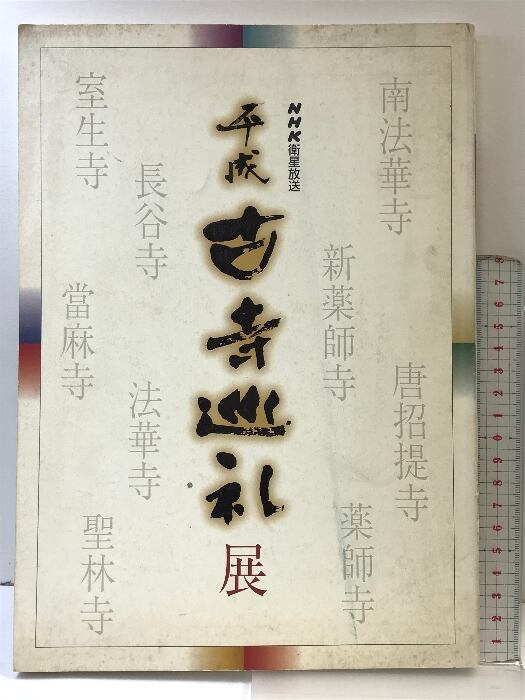 NHK衛星放送
平成
古寺巡礼
展
南法華寺
新薬師寺
唐招提寺
薬師寺
室生寺
長谷寺
當麻寺
法華寺
聖林寺